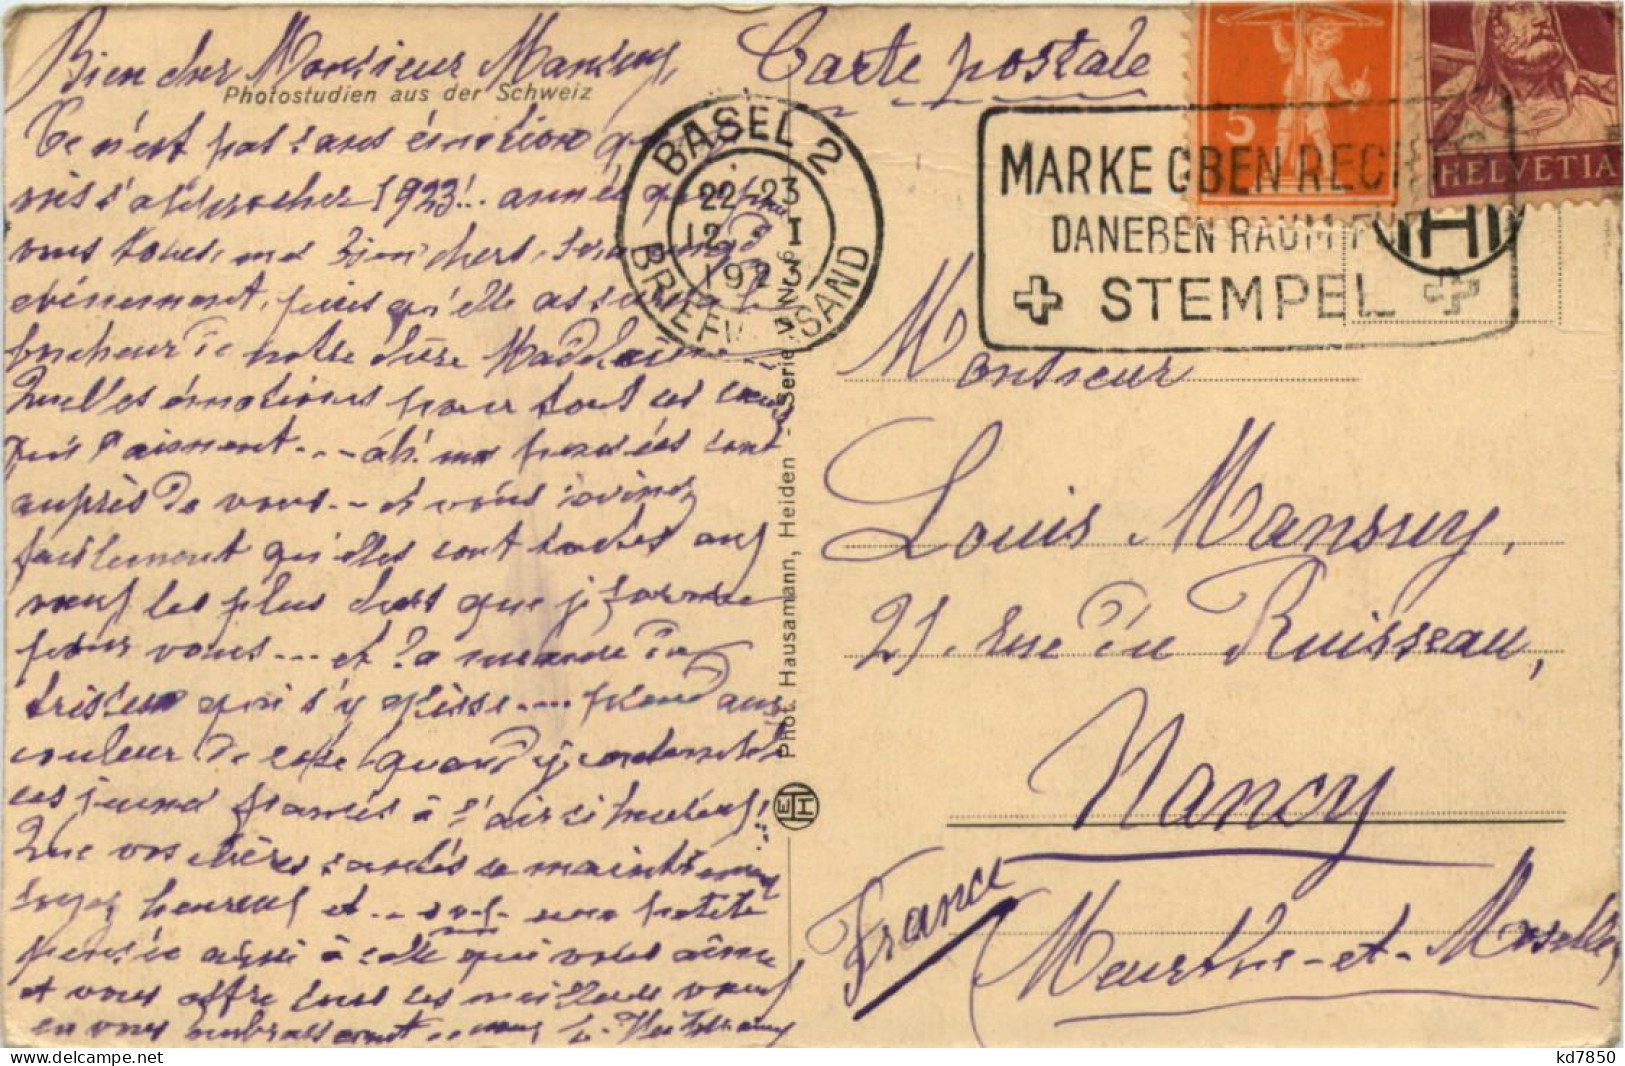 Bien cher Monsieur Mansuy,
Photostudien aus der Schweiz
Ce n'est pas sans émotion que je
vois s'approcher 1923!.. année qui pour
vous tous, mes bien chers, sera
évènement, puis qu'elle assurera le
bonheur de notre chère Madeleine
Quelles émotions pour tout ces cœurs
qui s'aiment... - ah! mes pensées sont
auprès de vous.. - et vous devinez
facilement qu'elles sont toutes aux
vœux les plus chers que je forme
pour vous.... et la
tristesse qui s'y glisse.... prend
couleur de rose quand j'y contemple
ces jeunes fiancés à l'air si heureux!
Que vos chères santés se maintiennent
soyez heureux et... une petite
pensée aussi à celle qui vous aime
et vous offre tous ses meilleurs vœux
en vous embrassant
Phot. Hausamann, Heiden - Serie
EHH
Carte postale
BASEL 2
22-23
12. I
1923
BRIEFVERSAND
MARKE OBEN RECHTS
DANEBEN RAUM FÜR
STEMPEL
5
HELVETIA
Monsieur
Louis Mansuy,
21, rue du Ruisseau,
Nancy
France
Meurthe-et-Moselle,
kd7850